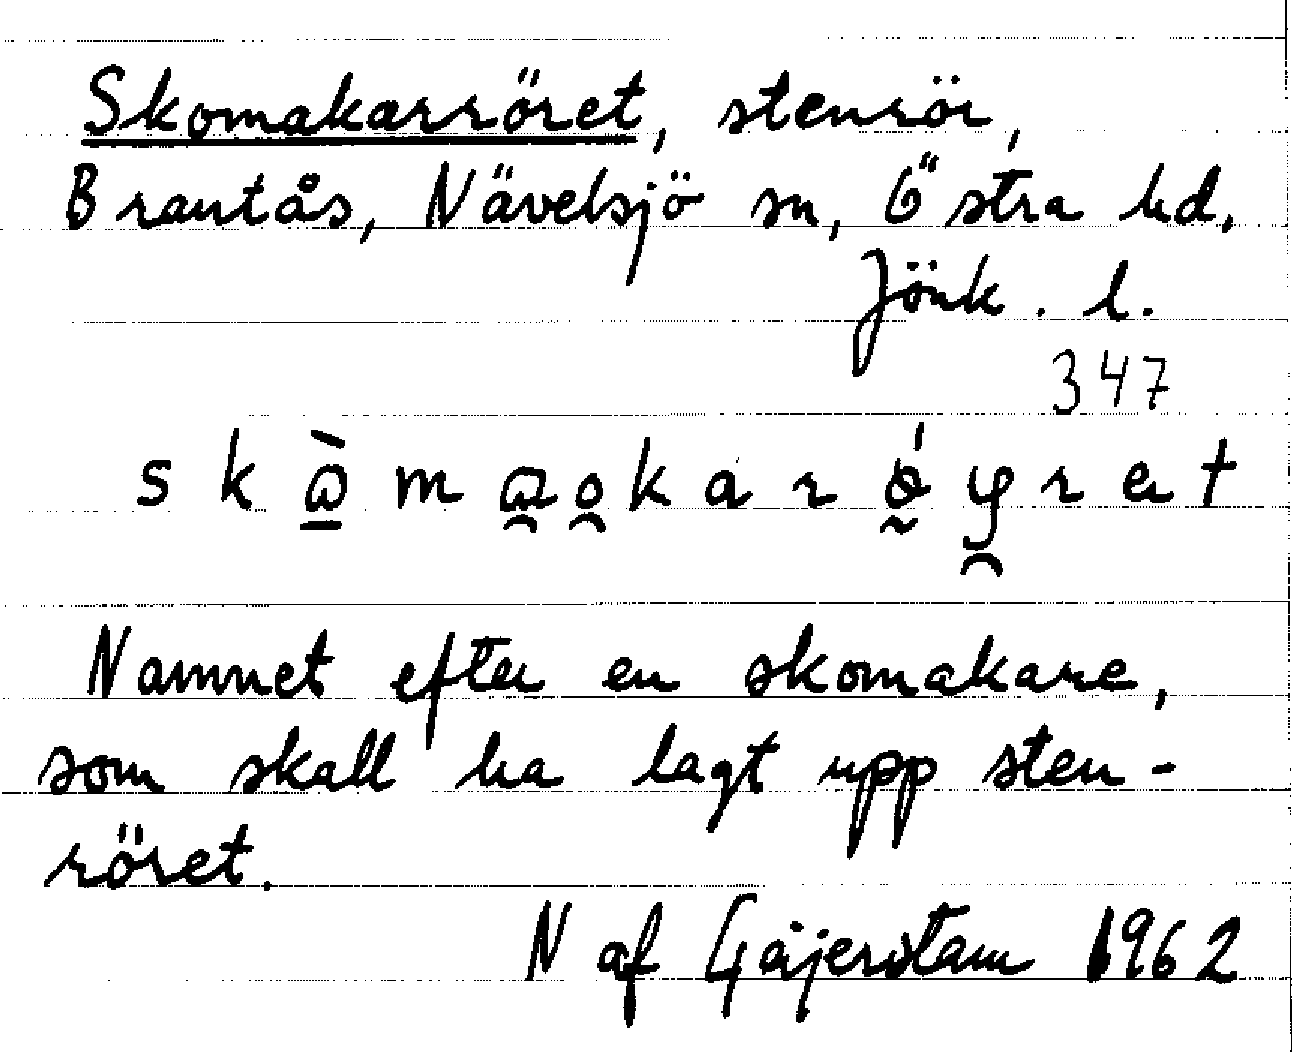 Skomakarröret, stenrör,
Brantås, Nävelsjö sn, Östra hd,
Jönk. l.
347
Namnet efter en skomakare,
som skall ha lagt upp sten-
röret.
N af Gäjerstam 1962